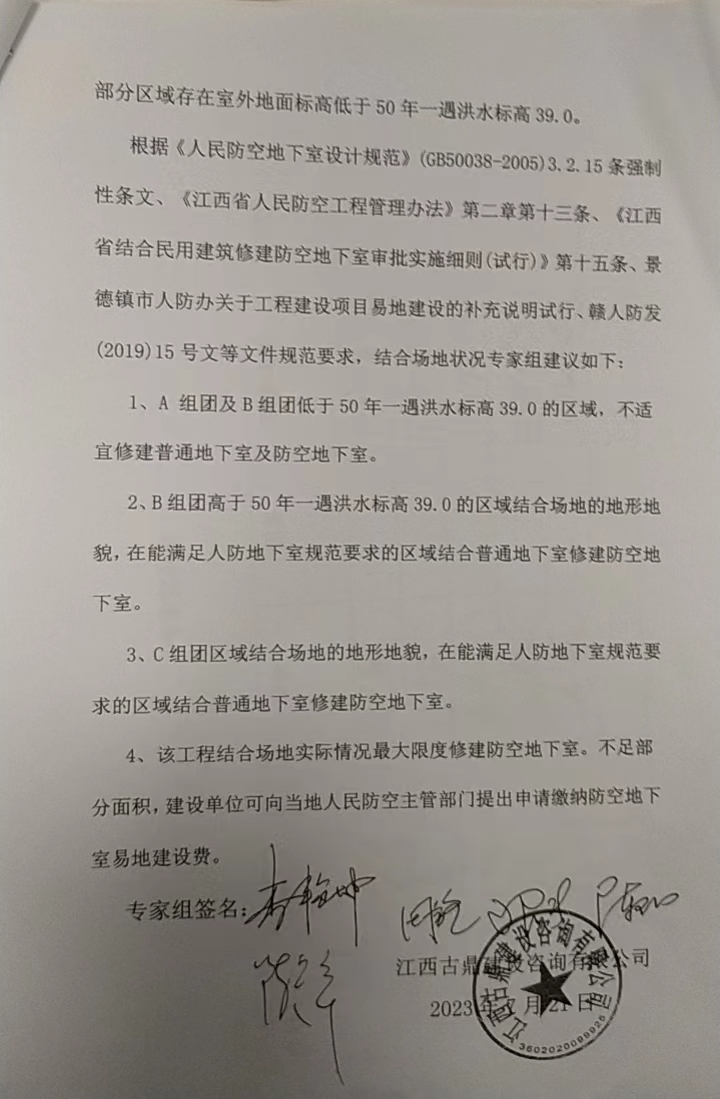 部分区域存在室外地面标高低于50年一遇洪水标高39.0。
根据《人民防空地下室设计规范》(GB50038-2005)3.2.15条强制
性条文、《江西省人民防空工程管理办法》第二章第十三条、《江西
省结合民用建筑修建防空地下室审批实施细则(试行)》第十五条、景
德镇市人防办关于工程建设项目易地建设的补充说明试行、赣人防发
(2019)15号文等文件规范要求，结合场地状况专家组建议如下：
1、A 组团及B组团低于50年一遇洪水标高39.0的区域，不适
宜修建普通地下室及防空地下室。
2、B组团高于50年一遇洪水标高39.0的区域结合场地的地形地
貌，在能满足人防地下室规范要求的区域结合普通地下室修建防空地
下室。
3、C组团区域结合场地的地形地貌，在能满足人防地下室规范要
求的区域结合普通地下室修建防空地下室。
4、该工程结合场地实际情况最大限度修建防空地下室。不足部
分面积，建设单位可向当地人民防空主管部门提出申请缴纳防空地下
室易地建设费。
专家组签名：
江西古鼎建设咨询有限公司
2023年7月21日
江西古鼎建设咨询有限公司